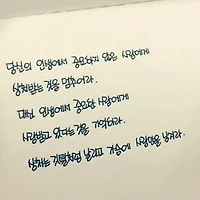 당신의 인생에서 중요하지 않은 사람에게
상처받는 것을 멈추어라.
대신 인생에서 중요한 사람에게
사랑받고 있다는 것을 기억하라.
상처는 깃털처럼 날리고 가슴에 사랑만을 남겨라.